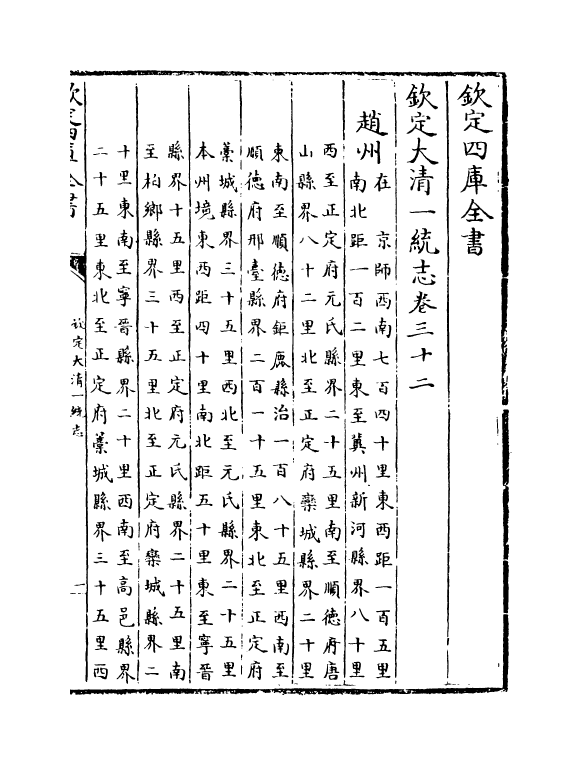 欽定四庫全書
欽定大清一統志卷三十二
趙州
在　京師西南七百四十里東西距一百五里
南北距一百二里東至冀州新河縣界八十里
西至正定府元氏縣界二十五里南至順德府唐
山縣界八十二里北至正定府欒城縣界二十里
東南至順德府鉅鹿縣治一百八十五里西南至
順德府邢臺縣界二百一十五里東北至正定府
藁城縣界三十五里西北至元氏縣界二十五里
本州境東西距四十里南北距五十里東至寧晉
縣界十五里西至正定府元氏縣界二十五里南
至柏鄉縣界三十五里北至正定府欒城縣界二
十里東南至寧晉縣界二十里西南至高邑縣界
二十五里東北至正定府藁城縣界三十五里西
欽定四庫全書
欽定大清一統志